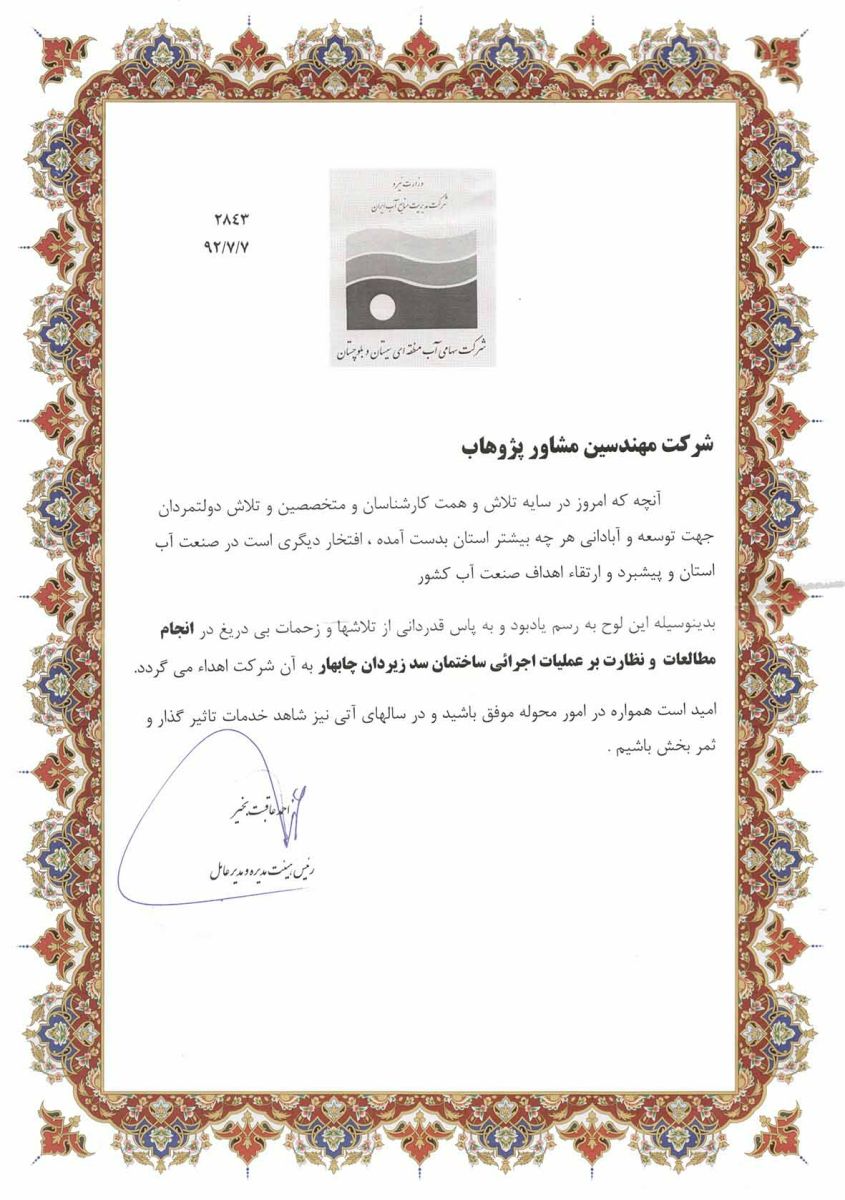 وزارت نیرو
شرکت مدیریت منابع آب ایران
شرکت سهامی آب منطقه ای سیستان و بلوچستان
۲۸٤۳
۹۲/۷/۷
شرکت مهندسین مشاور پژوهاب
آنچه که امروز در سایه تلاش و همت کارشناسان و متخصصین و تلاش دولتمردان
جهت توسعه و آبادانی هر چه بیشتر استان بدست آمده ، افتخار دیگری است در صنعت آب
استان و پیشبرد و ارتقاء اهداف صنعت آب کشور
بدینوسیله این لوح به رسم یادبود و به پاس قدردانی از تلاشها و زحمات بی دریغ در انجام
مطالعات و نظارت بر عملیات اجرائی ساختمان سد زیردان چابهار به آن شرکت اهداء می گردد.
امید است همواره در امور محوله موفق باشید و در سالهای آتی نیز شاهد خدمات تاثیر گذار و
ثمر بخش باشیم .
احمد عاقبت بخیر
رئیس هیئت مدیره و مدیر عامل